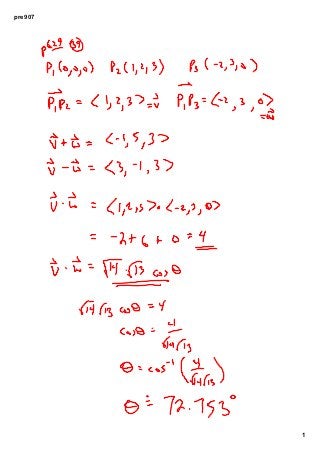 pre907
p629 39
P₁(0,0,0) P₂(1,2,3) P₃(-2,3,0)
P₁P₂ = <1,2,3> = v⃗ P₁P₃ = <-2,3,0> = w⃗
v⃗ + w⃗ = <-1,5,3>
v⃗ - w⃗ = <3,-1,3>
v⃗ · w⃗ = <1,2,3> · <-2,3,0>
= -2 + 6 + 0 = 4
v⃗ · w⃗ = √14 √13 cos θ
√14 √13 cos θ = 4
cos θ = 4/(√14 √13)
θ = cos⁻¹ (4/(√14 √13))
θ ≐ 72.753°
1